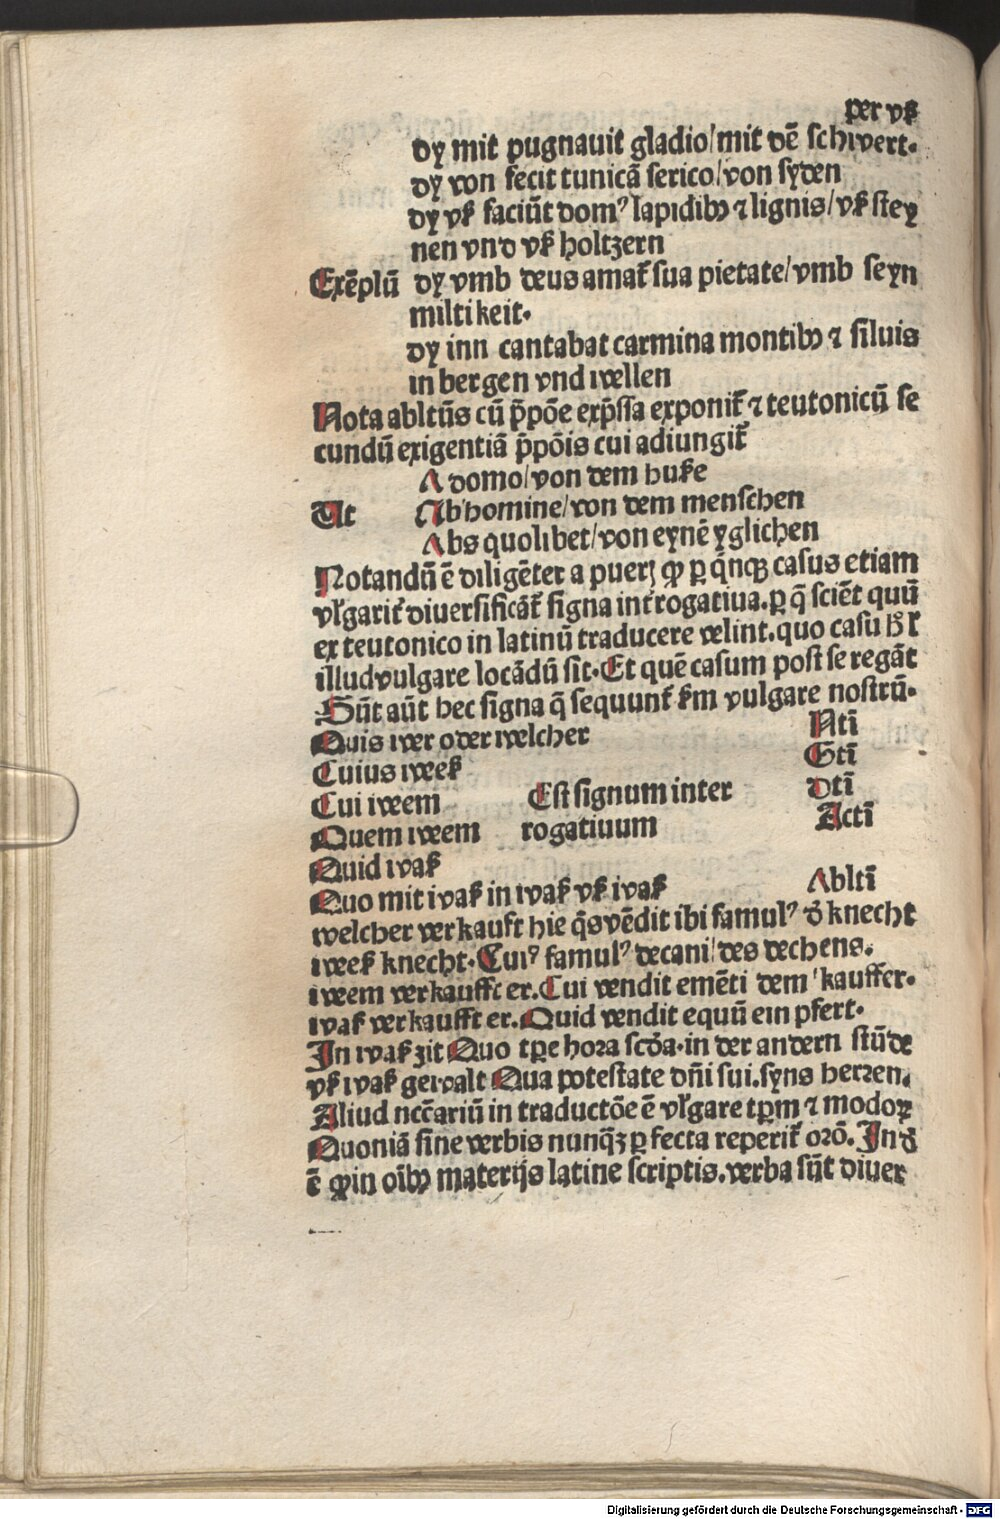 per vß
dy mit pugnauit gladio/mit dē schwert.
dy von fecit tunicā serico/von syden
dy vß faciūt domꝰ lapidibꝫ ⁊ lignis/vß stey
nen vnd vß holtzern
Exēplū dy vmb deus amat᷑ sua pietate/vmb seyn
miltikeit.
dy inn cantabat carmina montibꝫ ⁊ siluis
in bergen vnd wellen
Nota abltūs cū p̄pōe exp̄ssa exponit᷑ ⁊ teutonicū se
cundū exigentiā p̄pōis cui adiungit᷑
A domo/von dem huße
Ut Ab homine/von dem menschen
Abs quolibet/von eynē yglichen
Notandū ē diligēter a puerꝭ ꝙ ꝑ q̇nqꝫ casus etiam
vl᷑garit᷑ diuersificāt᷑ signa int᷑rogatiua.ꝑ q̄ sciēt quū
ex teutonico in latinū traducere velint.quo casu
illud vulgare locādū sit.Et quē casum post se regāt
Sūt aūt hec signa q̄ sequunt᷑ ẜm vulgare nostrū.
Quis wer oder welcher Ntī
Cuius weß Gtī
Cui weem Est signum inter dtī
Quem weem rogatiuum Actī
Quid waß
Quo mit waß in waß vß waß Abltī
welcher verkauft hie q̇s vēdit ibi famulꝰ d᷑ knecht
weeß knecht.Cuiꝰ famulꝰ decani/des dechens.
weem verkaufft er.Cui vendit emēti dem kauffer.
waß verkaufft er.Quid vendit equū ein pfert.
In waß zit Quo tꝑe hora scd̄a.in der andern stūde
vß waß gewalt Qua potestate dn̄i sui.syns herren.
Aliud nccāriū in traductōe ē vl᷑gare tꝑm ⁊ modoꝝ
Quoniā sine verbis nunqꝫ ꝑfecta reperit᷑ orō.Ind᷑
ē ꝙ in oībꝫ materijs latine scriptis.verba sūt diuer
Digitalisierung gefördert durch die Deutsche Forschungsgemeinschaft - DFG